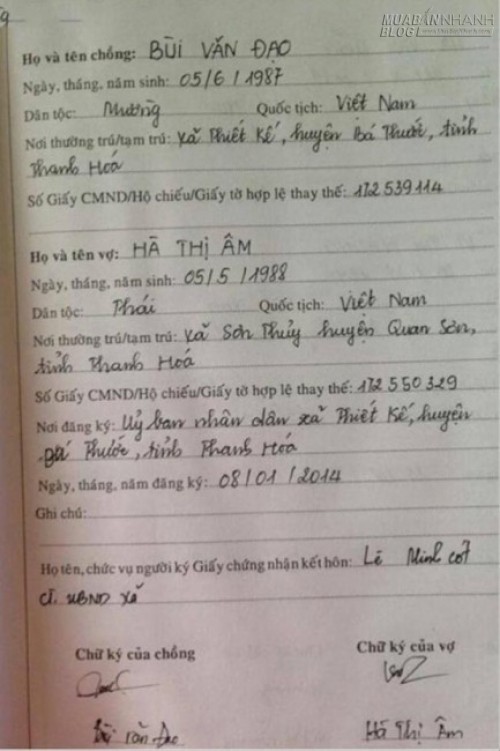 MUABANNHANH
BLOG!
Họ và tên chồng: BÙI VĂN ĐẠO
Ngày, tháng, năm sinh: 05/6/1987
Dân tộc: Mường Quốc tịch: Việt Nam
Nơi thường trú/tạm trú: xã Thiết Kế, huyện Bá Thước, tỉnh
Thanh Hoá
Số Giấy CMND/Hộ chiếu/Giấy tờ hợp lệ thay thế: 172 539 114
Họ và tên vợ: HÀ THỊ ÂM
Ngày, tháng, năm sinh: 05/5/1988
Dân tộc: Thái Quốc tịch: Việt Nam
Nơi thường trú/tạm trú: xã Sơn Thủy huyện Quan Sơn,
tỉnh Thanh Hoá
Số Giấy CMND/Hộ chiếu/Giấy tờ hợp lệ thay thế: 172 550 329
Nơi đăng ký: Uỷ ban nhân dân xã Thiết Kế, huyện
Bá Thước, tỉnh Thanh Hóa
Ngày, tháng, năm đăng ký: 08/01/2014
Ghi chú:
Họ tên, chức vụ người ký Giấy chứng nhận kết hôn: Lê Minh
CT. UBND xã
Chữ ký của chồng Chữ ký của vợ
Bùi Văn Đạo Hà Thị Âm